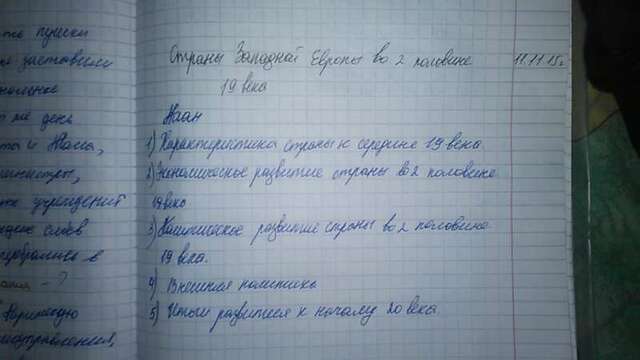 та пушки
заставили
же день
та и Жама,
министры,
учреждений
слоев
в
- ?
Страны Западной Европы во 2 половине
11.11.15г
19 века
План
1) Характеристика страны к середине 19 века.
2) Экономическое развитие страны во 2 половине
19 века
3) Политическое развитие страны во 2 половине
19 века.
4) Внешняя политика
5) Итоги развития к началу 20 века.